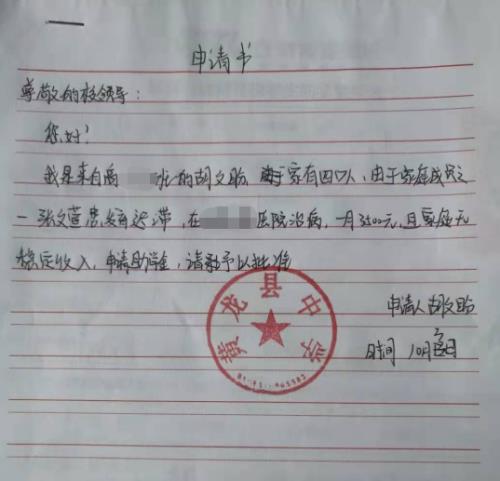 申请书
尊敬的校领导：
您好！
我是来自高 的胡文 家有四口人，由于家庭成员之
一张文 患发育迟滞，在 医院治病，一月3500元，且家庭无
稳定收入，申请助学金，请 予以批准
申请人胡文
时间 10月 日
黄龙县中学